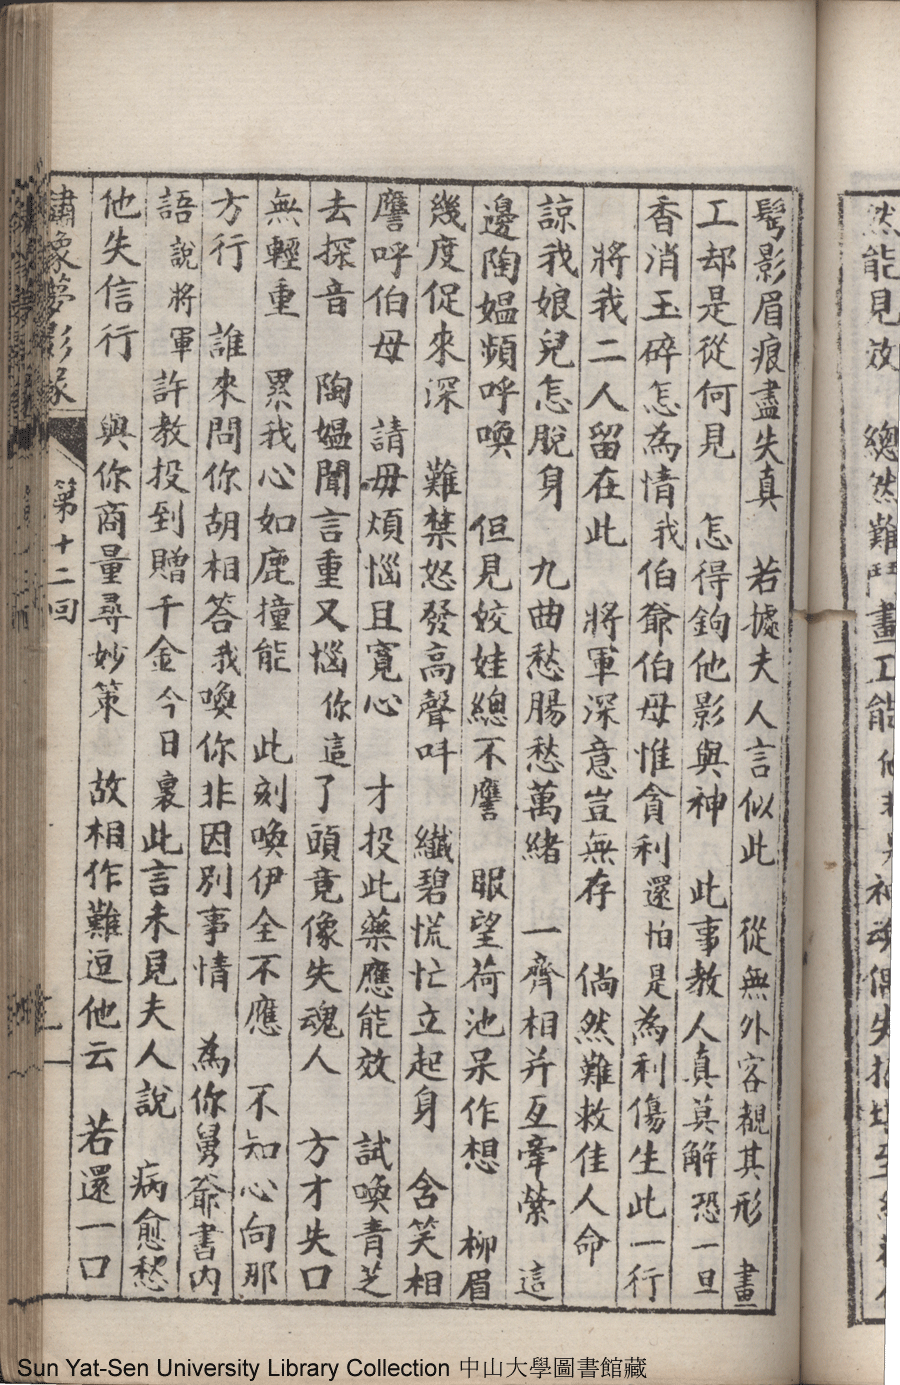 然能見效　總然難鬥畫工能
髩影眉痕盡失真　若據夫人言似此　從無外客覩其形　畫
工却是從何見　怎得鉤他影與神　此事教人真莫解恐一旦
香消玉碎怎為情我伯爺伯母惟貪利還怕是為利傷生此一行
將我二人留在此　將軍深意豈無存　倘然難救佳人命
諒我娘兒怎脫身　九曲愁腸愁萬緒　一齊相并互牽縈　這
邊陶媪頻呼喚　但見姣娃總不譍　眼望荷池呆作想　柳眉
幾度促來深　難禁怒發高聲呌　纎碧慌忙立起身　含笑相
譍呼伯母　請毋煩惱且寬心　才投此藥應能效　試喚青芝
去探音　陶媪聞言重又惱你這了頭竟像失魂人　方才失口
無輕重　累我心如鹿撞能　此刻喚伊全不應　不知心向那
方行　誰來問你胡相答我喚你非因別事情　為你舅爺書內
語說將軍許教投到贈千金今日裏此言未見夫人說　病愈愁
他失信行　與你商量尋妙策　故相作難逗他云　若還一口
繡像夢影緣　第十二回
Sun Yat-Sen University Library Collection 中山大學圖書館藏